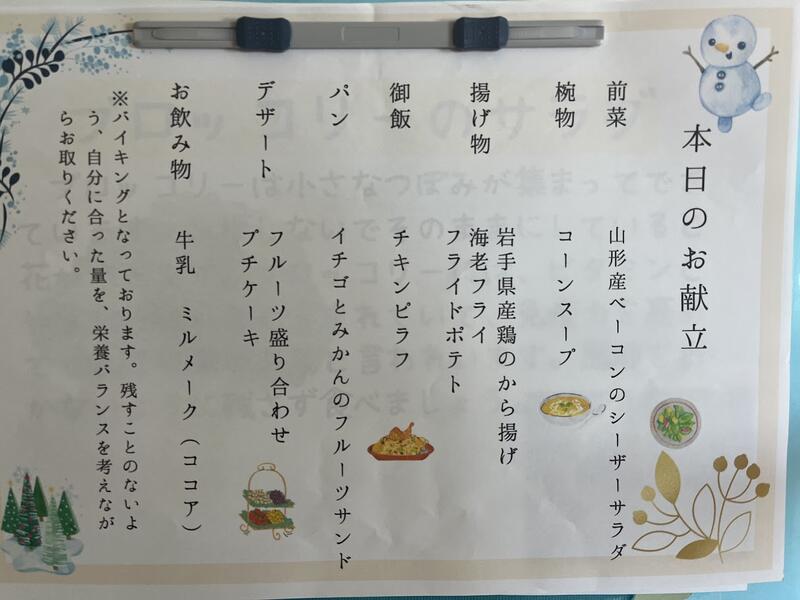 本日のお献立
前菜 山形産ベーコンのシーザーサラダ
椀物 コーンスープ
揚げ物 岩手県産鶏のから揚げ
海老フライ
フライドポテト
御飯 チキンピラフ
パン イチゴとみかんのフルーツサンド
デザート フルーツ盛り合わせ
プチケーキ
お飲み物 牛乳 ミルメーク(ココア)
※バイキングとなっております。残すことのないよ
う、自分に合った量を、栄養バランスを考えなが
らお取りください。